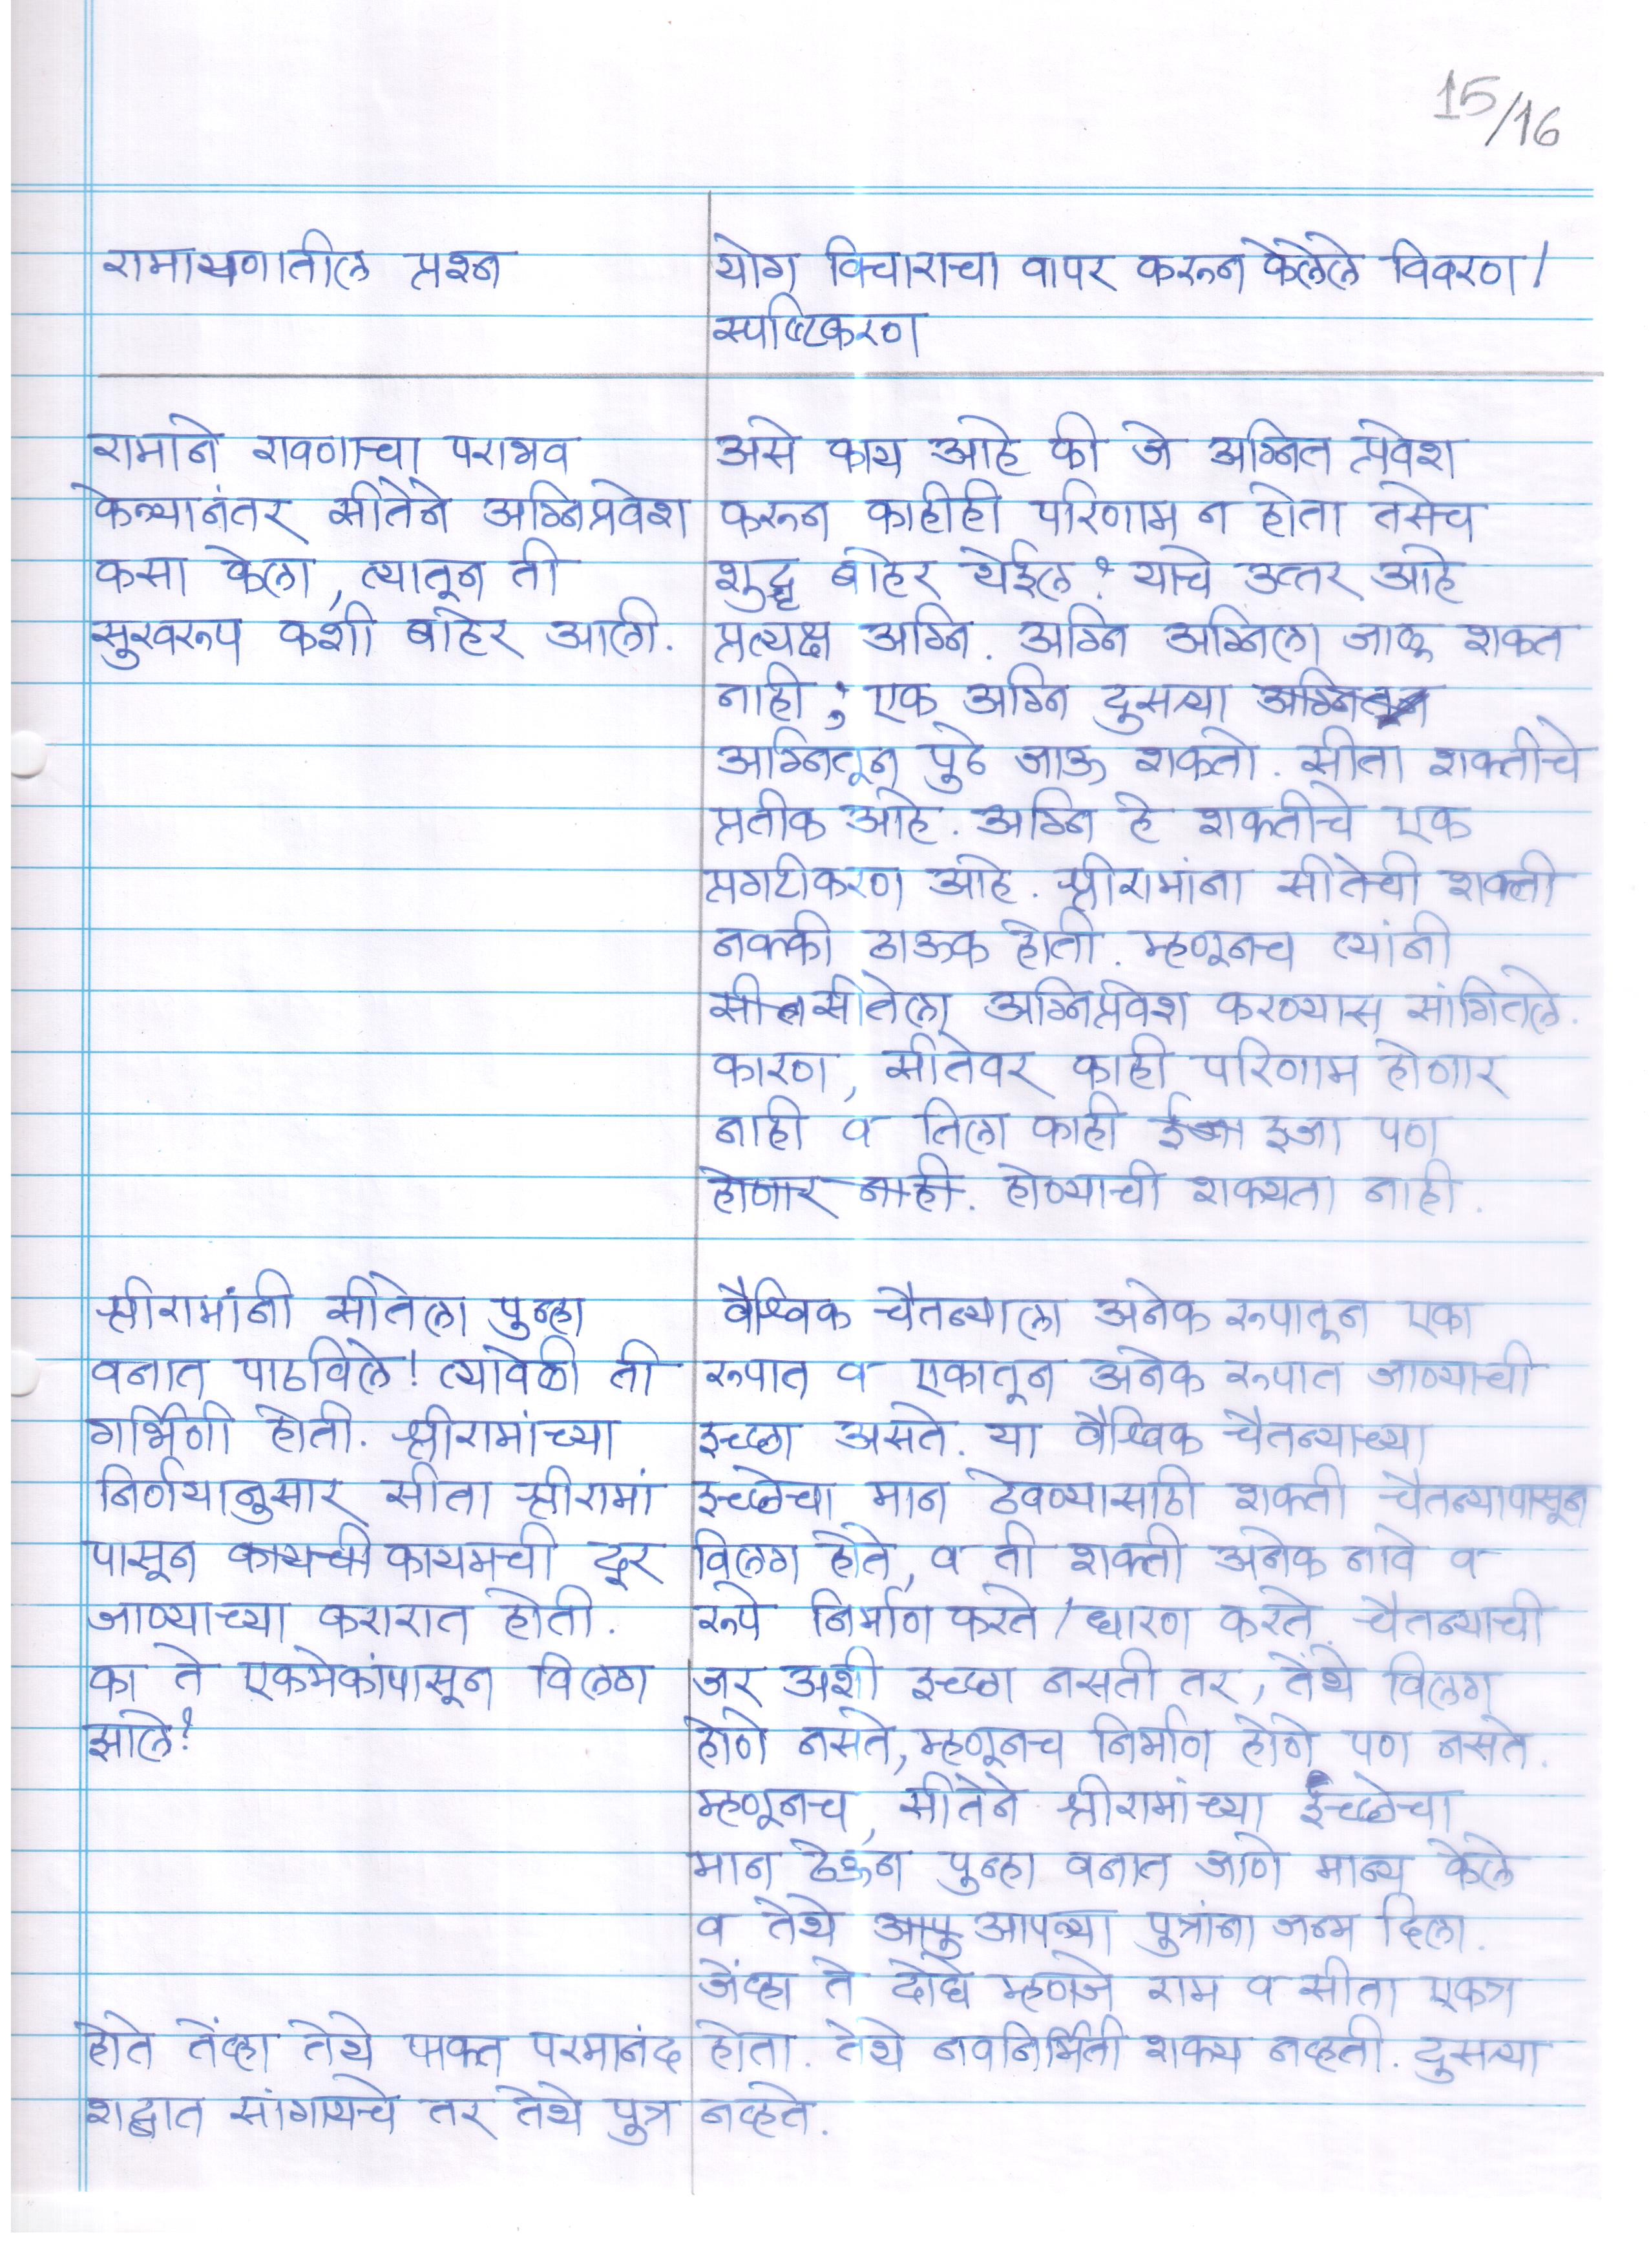 15/16
रामायणातील प्रश्न
योग विचाराचा वापर करून केलेले विवरण/
स्पष्टिकरण
रामाने रावणाचा पराभव
केल्यानंतर सीतेने अग्निप्रवेश
कसा केला, त्यातून ती
सुखरूप कशी बाहेर आली.
असे काय आहे की जे अग्नित प्रवेश
करून काहीही परिणाम न होता तसेच
शुद्ध बाहेर येईल? याचे उत्तर आहे
प्रत्यक्ष अग्नि. अग्नि अग्निला जाळू शकत
नाही; एक अग्नि दुसऱ्या
अग्नितून पुढे जाऊ शकतो. सीता शक्तीचे
प्रतीक आहे. अग्नि हे शक्तीचे एक
प्रगटीकरण आहे. श्रीरामांना सीतेची शक्ती
नक्की ठाऊक होती. म्हणूनच त्यांनी
सीतेला अग्निप्रवेश करण्यास सांगितले.
कारण, सीतेवर काही परिणाम होणार
नाही व तिला काही इजा पण
होणार नाही. होण्याची शक्यता नाही.
श्रीरामांनी सीतेला पुन्हा
वनात पाठविले! त्यावेळी ती
गर्भिणी होती. श्रीरामांच्या
निर्णयानुसार सीता श्रीरामां
पासून कायमची दूर
जाण्याच्या करारात होती.
का ते एकमेकांपासून विलग
झाले?
वैश्विक चैतन्याला अनेक रूपातून एका
रूपात व एकातून अनेक रूपात जाण्याची
इच्छा असते. या वैश्विक चैतन्याच्या
इच्छेचा मान ठेवण्यासाठी शक्ती चैतन्यापासून
विलग होते, व ती शक्ती अनेक नावे व
रूपे निर्माण करते/धारण करते. चैतन्याची
जर अशी इच्छा नसती तर, तेथे विलग
होणे नसते, म्हणूनच निर्माण होणे पण नसते.
म्हणूनच, सीतेने श्रीरामांच्या इच्छेचा
मान ठेऊन पुन्हा वनात जाणे मान्य केले
व तेथे आपल्या पुत्रांना जन्म दिला.
जेंव्हा ते दोघे म्हणजे राम व सीता एकत्र
होते तेंव्हा तेथे फक्त परमानंद होता. तेथे नवनिर्मिती शक्य नव्हती. दुसऱ्या
शद्बात सांगायचे तर तेथे पुत्र नव्हते.